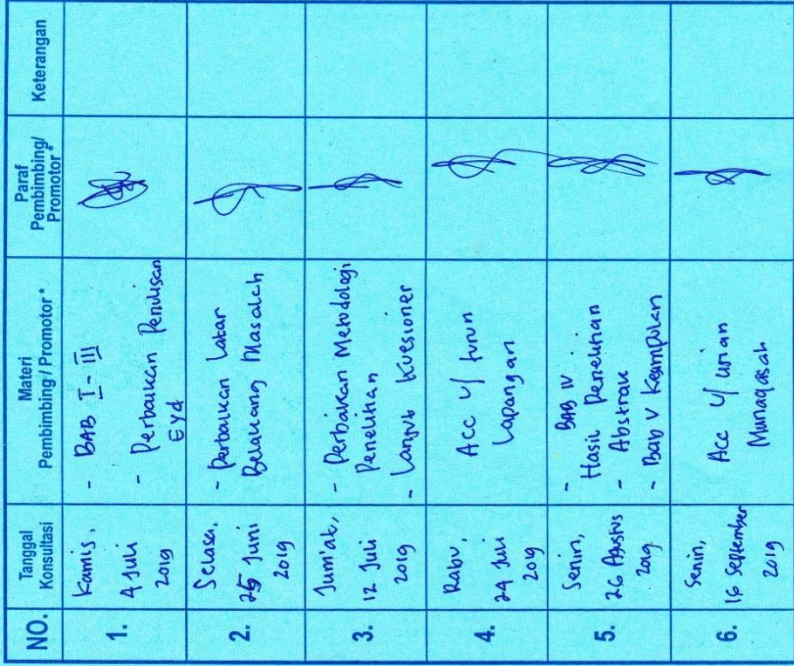 NO.
Tanggal
Konsultasi
Materi
Pembimbing / Promotor *
Paraf
Pembimbing/
Promotor *
Keterangan
1.
Kamis,
4 Juli
2019
- BAB I - III
- Perbaikan Penulisan
EYd
2.
Selasa,
25 Juni
2019
- Perbaikan Latar
Belakang Masalah
3.
Jum'at,
12 Juli
2019
- Perbaikan Metodologi
Penelitian
- Lanjut Kuesioner
4.
Rabu,
24 Juli
2019
Acc u/ turun
Lapangan
5.
Senin,
26 Agustus
2019
- BAB IV
Hasil Penelitian
- Abstrak
- Bab V Kesimpulan
6.
Senin,
16 September
2019
Acc u/ ujian
Munaqasah